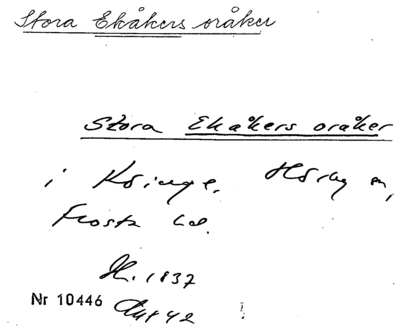 Stora Ekåkers oråker
Stora Ekåkers oråker
i Köinge, Hörby sn,
Frosta hd.
H. 1837
Nr 10446